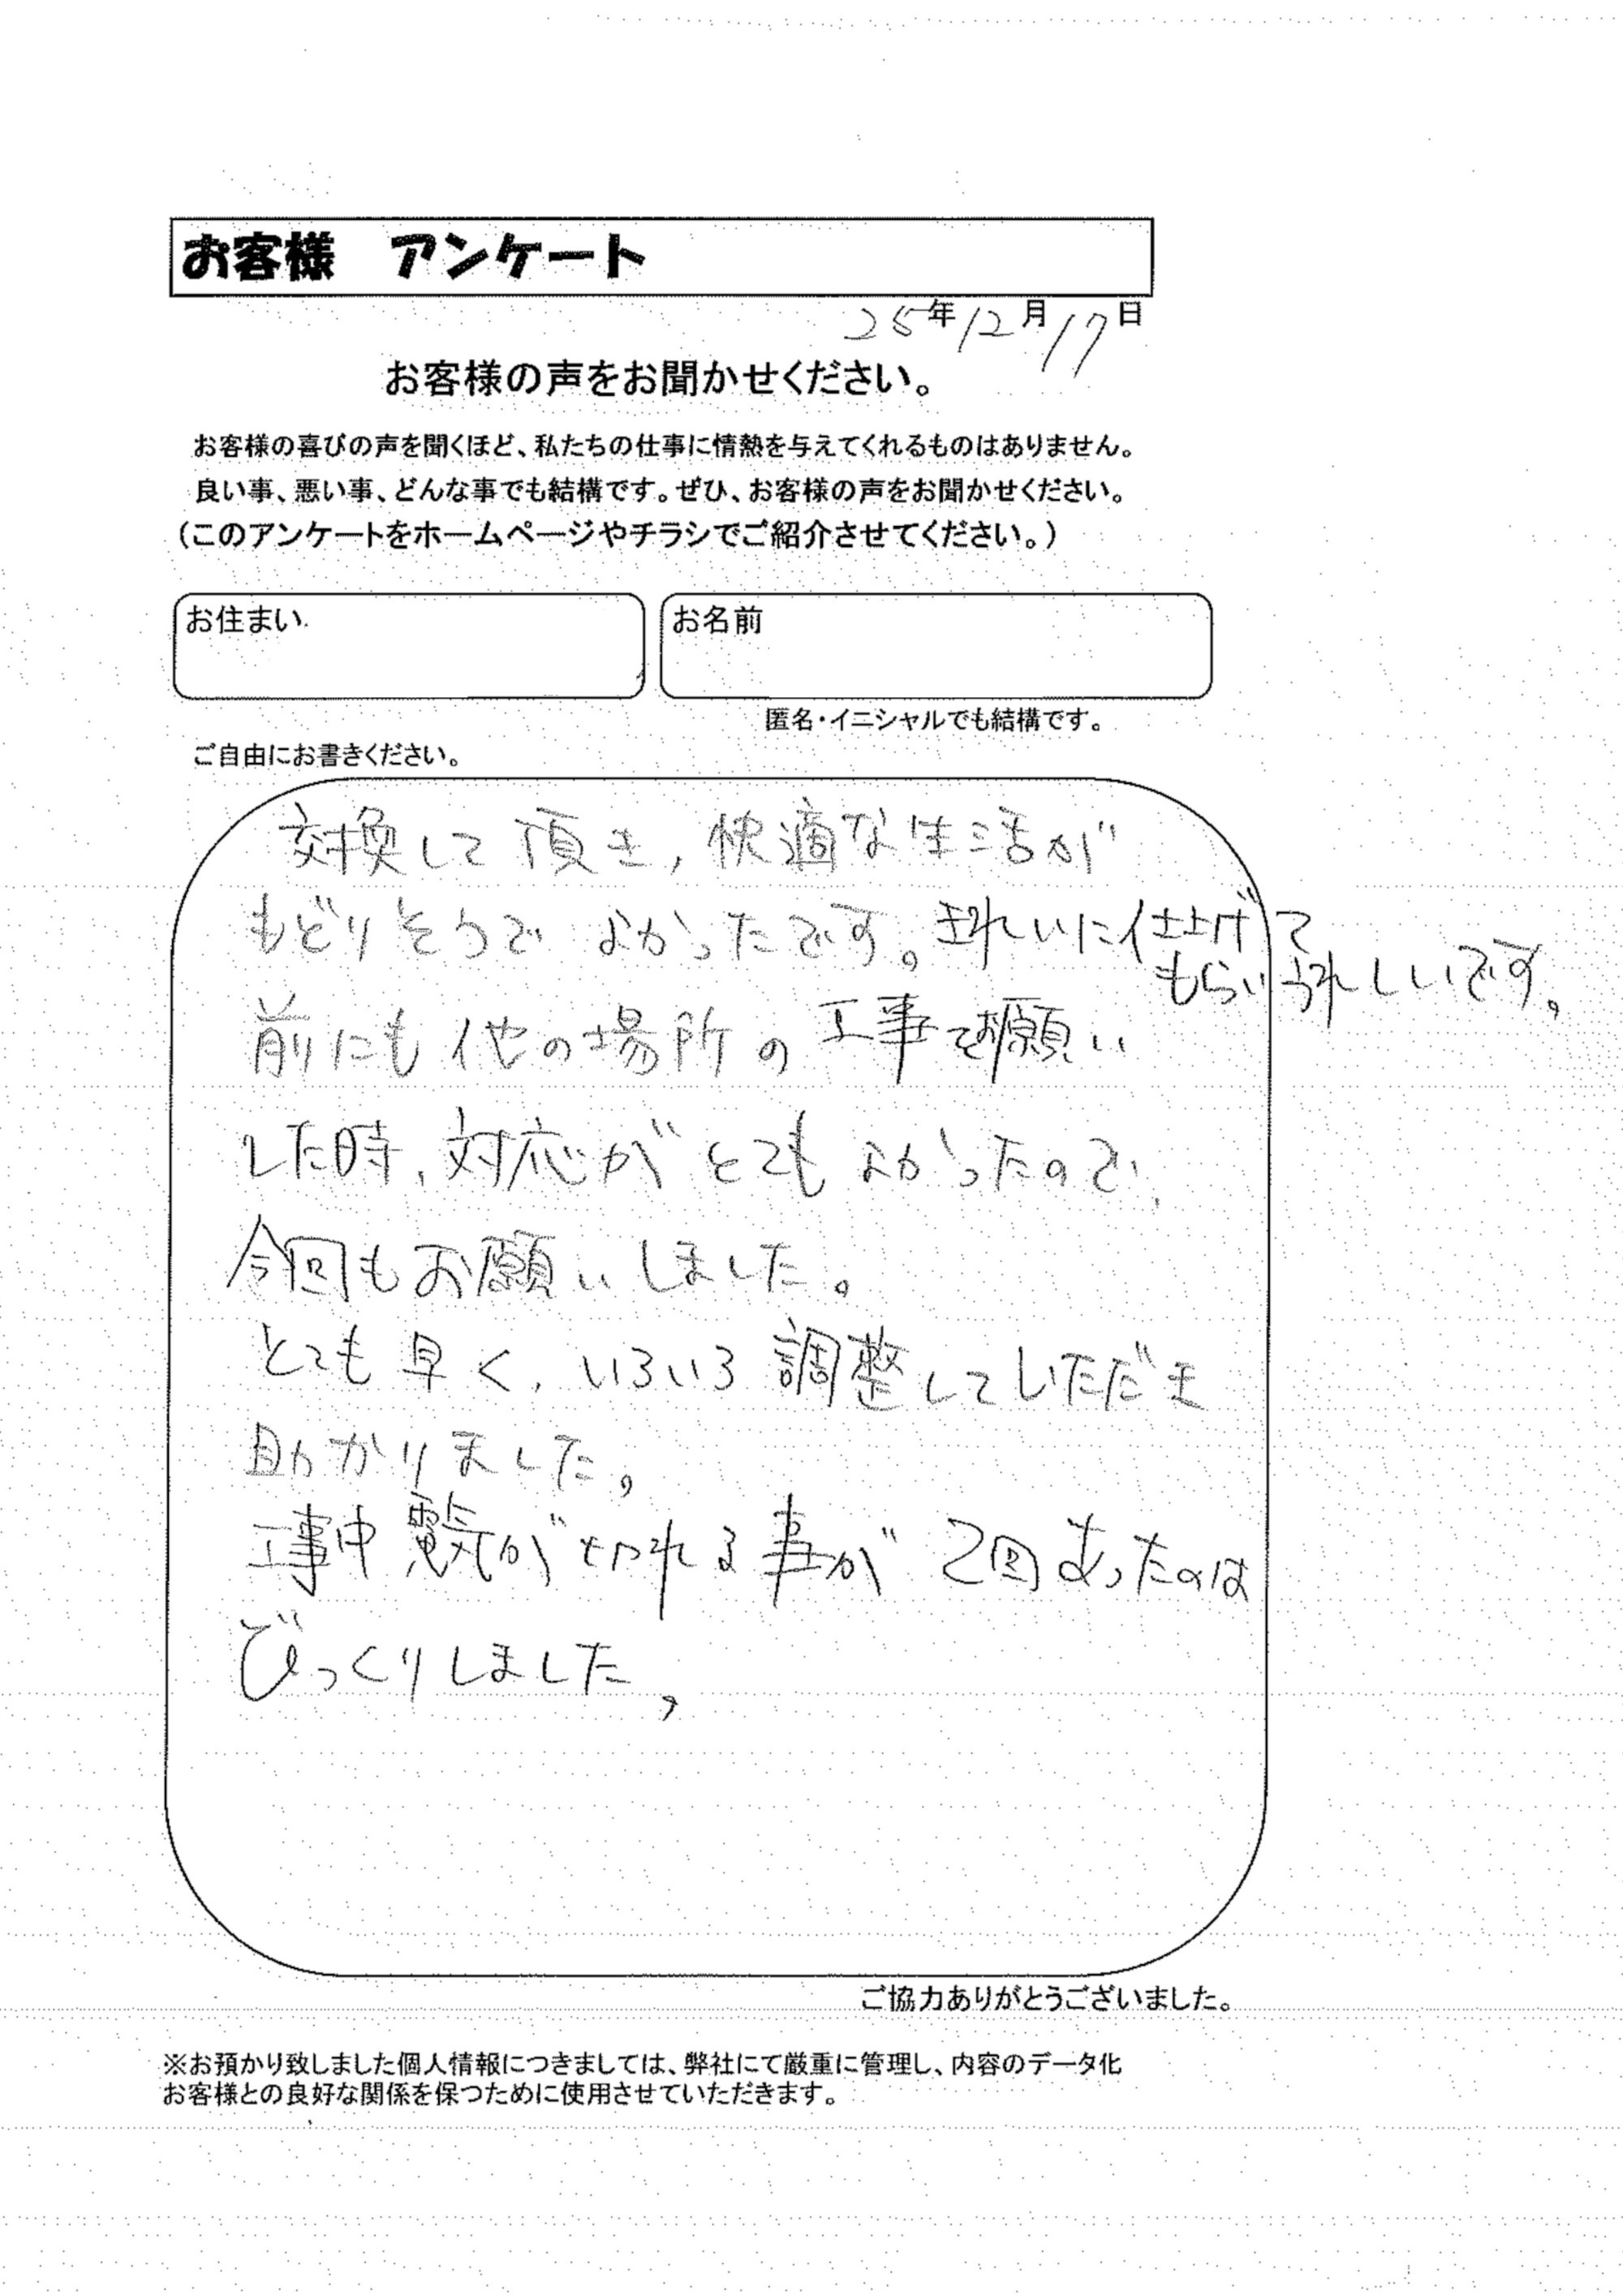 お客様　アンケート
25年12月17日
お客様の声をお聞かせください。
お客様の喜びの声を聞くほど、私たちの仕事に情熱を与えてくれるものはありません。
良い事、悪い事、どんな事でも結構です。ぜひ、お客様の声をお聞かせください。
（このアンケートをホームページやチラシでご紹介させてください。）
お住まい
お名前
匿名・イニシャルでも結構です。
ご自由にお書きください。
交換して頂き，快適な生活が
もどりそうで よかったです。きれいに仕上げて
もらいうれしいです。
前にも他の場所の工事をお願い
した時、対応がとてもよかったので、
今回もお願いしました。
とても早く、いろいろ調整していただき
助かりました。
工事中電気が切れる事が2回あったのは
びっくりしました，
ご協力ありがとうございました。
※お預かり致しました個人情報につきましては、弊社にて厳重に管理し、内容のデータ化
お客様との良好な関係を保つために使用させていただきます。